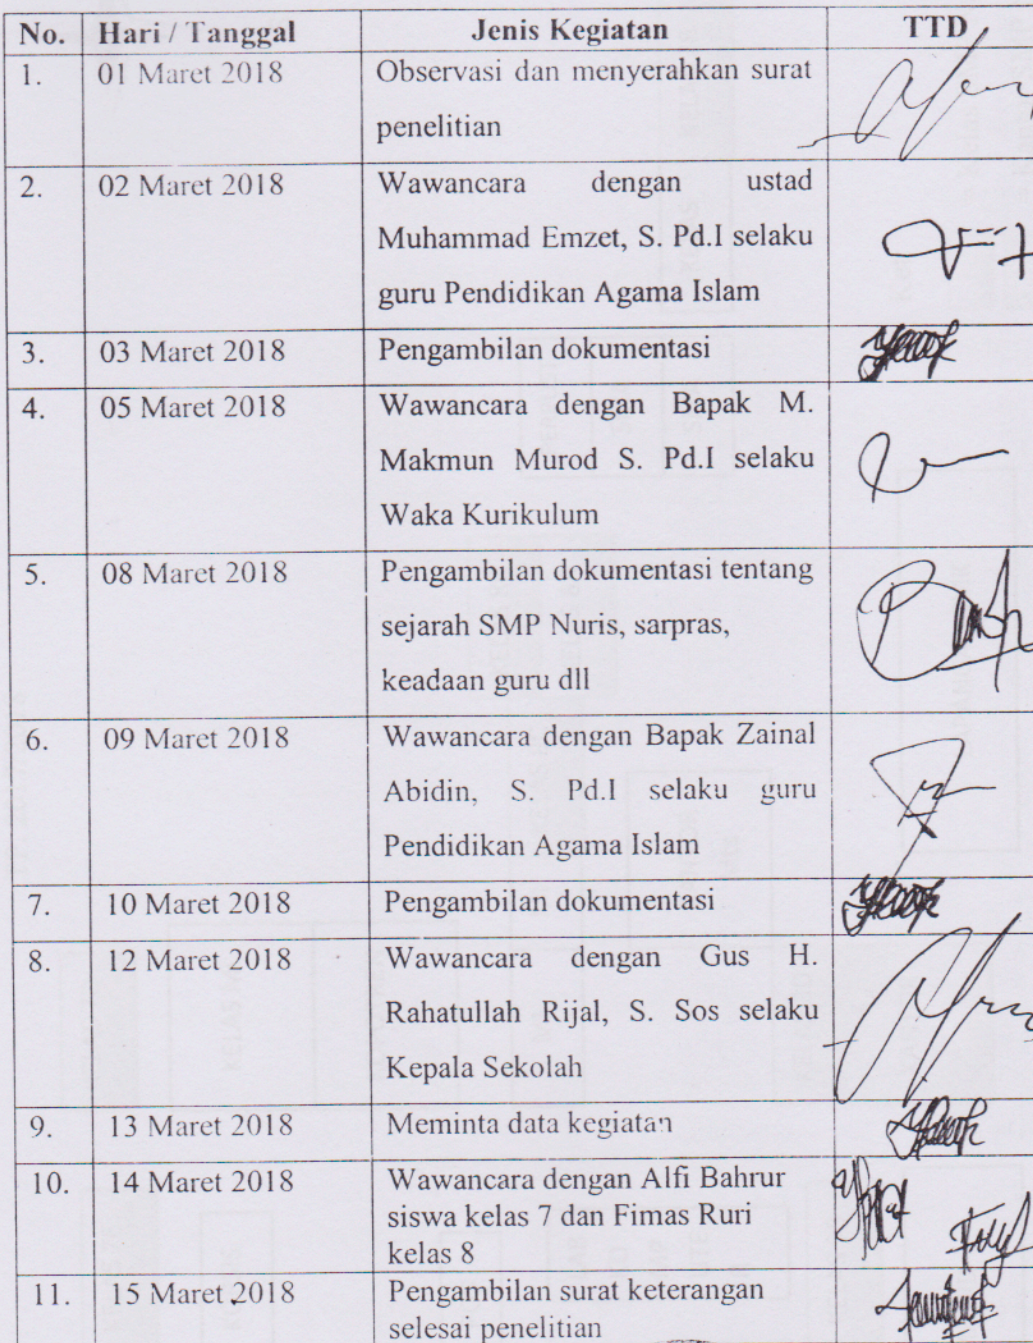 No. Hari / Tanggal Jenis Kegiatan TTD
1. 01 Maret 2018 Observasi dan menyerahkan surat
penelitian
2. 02 Maret 2018 Wawancara dengan ustad
Muhammad Emzet, S. Pd.I selaku
guru Pendidikan Agama Islam
3. 03 Maret 2018 Pengambilan dokumentasi
4. 05 Maret 2018 Wawancara dengan Bapak M.
Makmun Murod S. Pd.I selaku
Waka Kurikulum
5. 08 Maret 2018 Pengambilan dokumentasi tentang
sejarah SMP Nuris, sarpras,
keadaan guru dll
6. 09 Maret 2018 Wawancara dengan Bapak Zainal
Abidin, S. Pd.I selaku guru
Pendidikan Agama Islam
7. 10 Maret 2018 Pengambilan dokumentasi
8. 12 Maret 2018 Wawancara dengan Gus H.
Rahatullah Rijal, S. Sos selaku
Kepala Sekolah
9. 13 Maret 2018 Meminta data kegiatan
10. 14 Maret 2018 Wawancara dengan Alfi Bahrur
siswa kelas 7 dan Fimas Ruri
kelas 8
11. 15 Maret 2018 Pengambilan surat keterangan
selesai penelitian